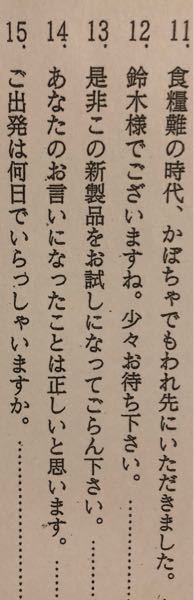 11 食糧難の時代、かぼちゃでもわれ先にいただきました。
12. 鈴木様でございますね。少々お待ち下さい。…………
13. 是非この新製品をお試しになってごらん下さい。……
14. あなたのお言いになったことは正しいと思います。…
15. ご出発は何日でいらっしゃいますか。…………………